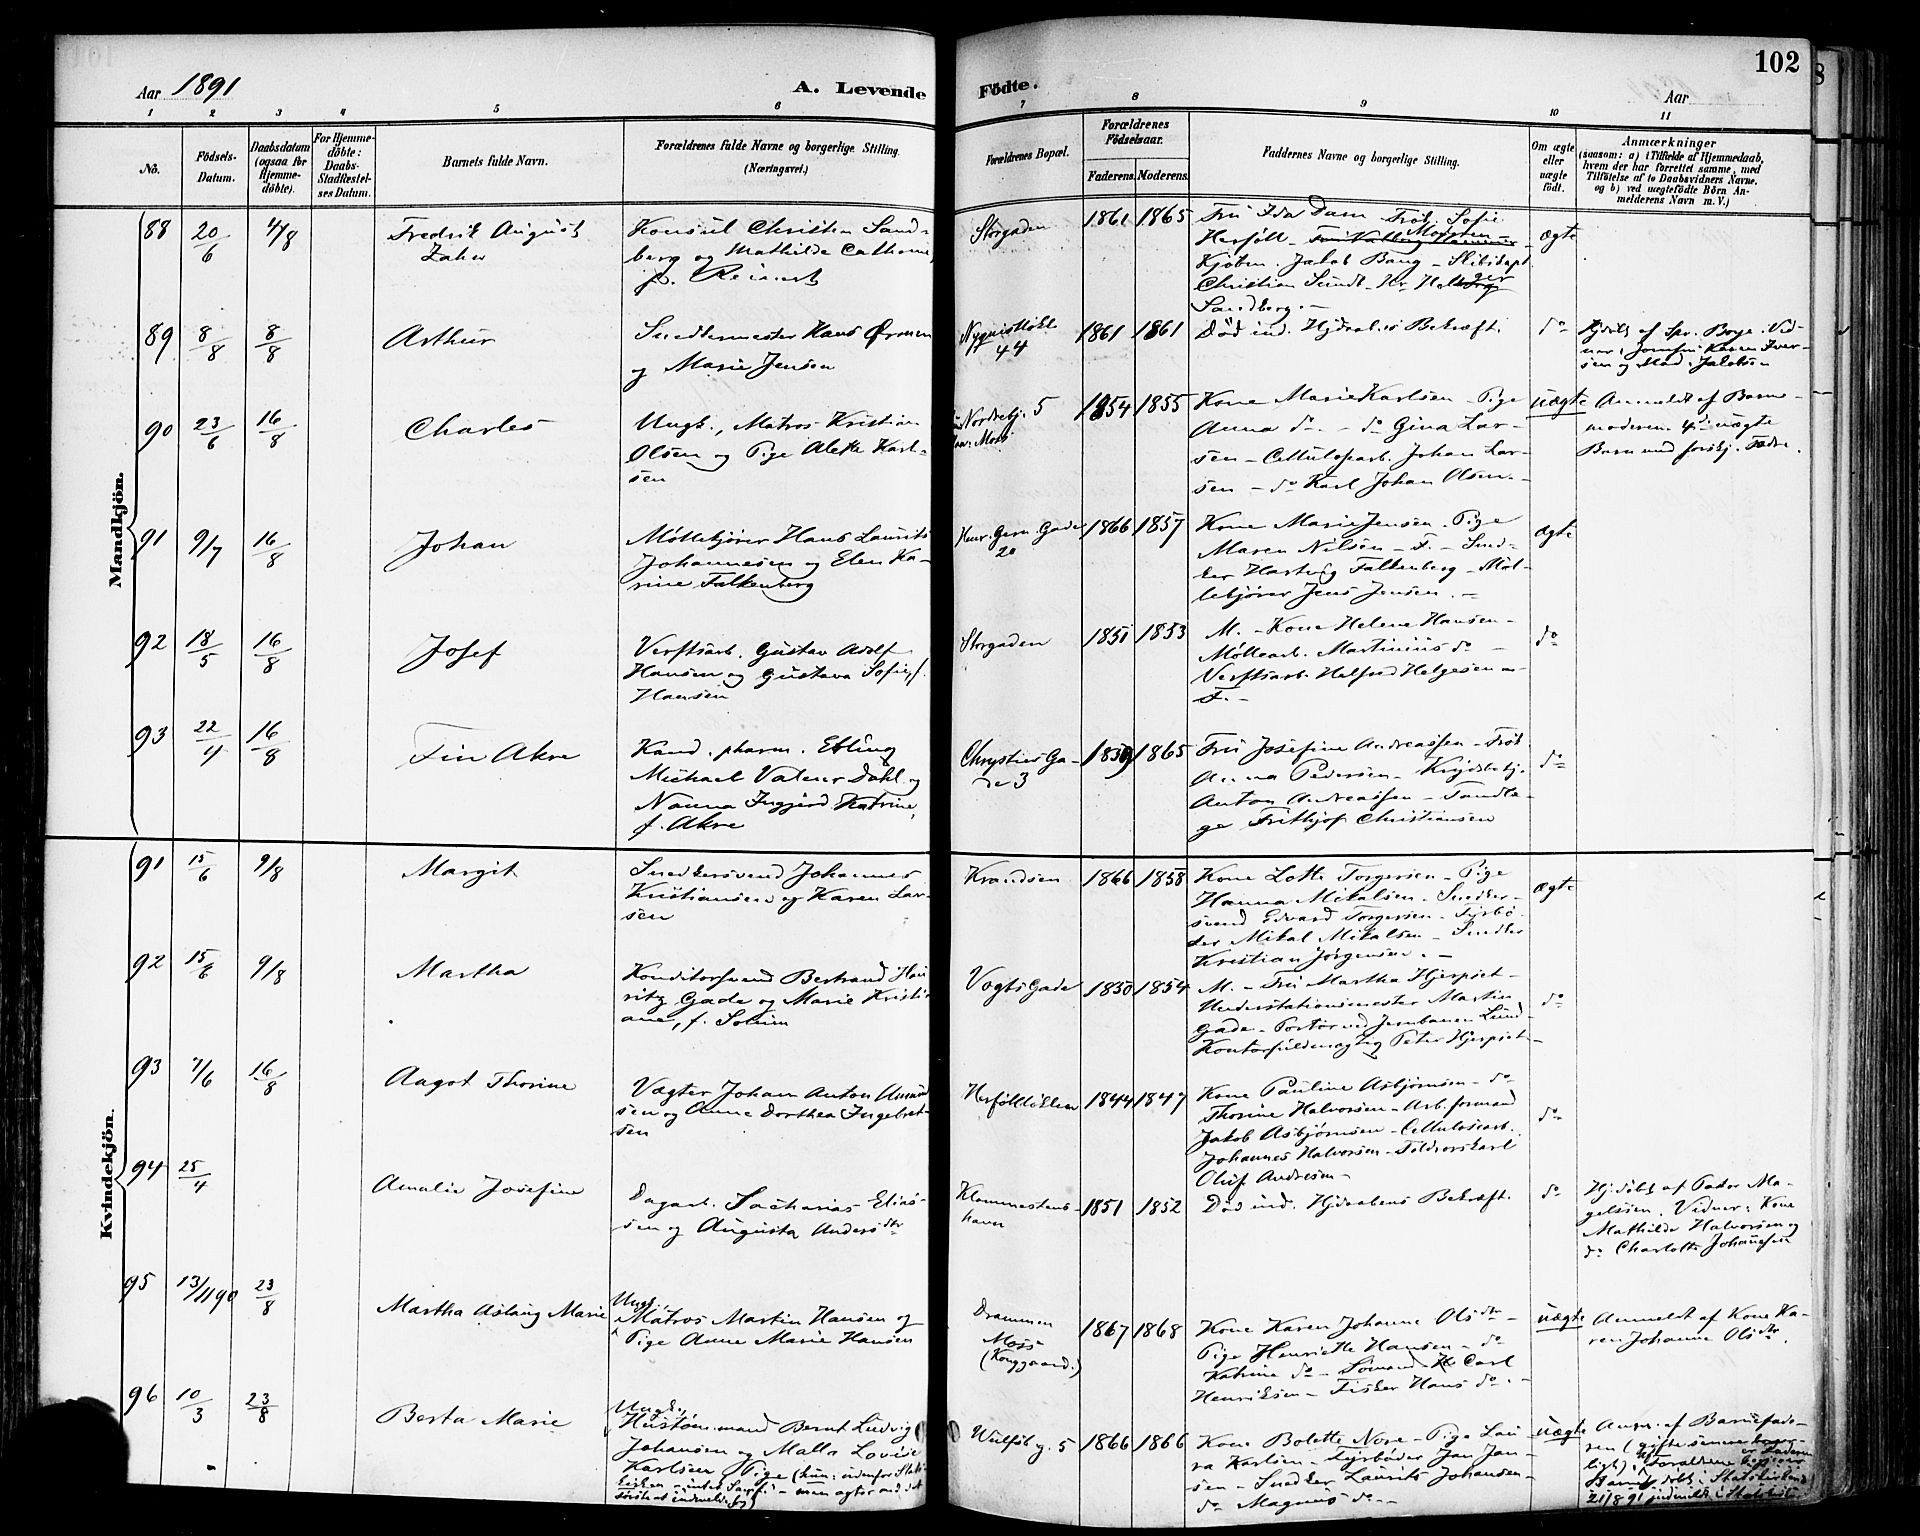 102
Aar 1891
A. Levende
Födte.
Aar
1 2 3 4 5 6 7 8 9 10 11
No.
Födsels-
Datum.
Daabsdatum
(ogsaa for
Hjemme-
döbte).
For Hjemme-
döbte:
Daabs-
Stadfæstel-
ses Datum.
Barnets fulde Navn.
Forældrenes fulde Navne og borgerlige Stilling.
(Næringsvei.)
Forældrenes Bopæl.
Forældrenes
Födselsaar.
Faderens. Moderens.
Faddernes Navne og borgerlige Stilling.
Om ægte
eller
uægte
födt.
Anmærkninger
(saasom: a) i Tilfælde af Hjemmedaab,
hvem der har forrettet samme, med
Tilföielse af to Daabsvidners Navne,
og b) ved uægtefödte Börn An-
melderens Navn m. V.)
Mandkjön.
88 20/6 4/8
Fredrik August
Konsul Christen Sand-
berg og Mathilde Cathrine,
f. Reinert
Storgaden
1861 1865
Fru Ida Dam Frøk. Sofie
Herføll
Kjøbm. Jakob Bang
Christian Sundt
Sandberg.
ægte
89 8/8 8/8
Arthur
Snedkermester Hans
og Marie Jensen
44
1861 1861
Død ind. Hjdaabs Bekræft.
do
Hjdøbt af Spr. Borge. Vid-
ner: Jomfru Karen Iver-
sen og Mad. Jakobsen
90 23/6 16/8
Charles
Ungk., Matros Kristian
Olsen og Pige Alette Karl-
sen
5
Moss
1854 1855
Kone Marie Karlsen - Pige
Anna do - do Gina Lar-
sen - Cellulosearb. Johan Lar-
sen - do Karl Johan Olsen.
uægte
Anmeldt af Barne-
moderen. 4de uægte
Barn med forskj. Fædre.
91 9/7 16/8
Johan
Møllekjører Hans Laurits
Johannesen og Elen Ka-
rine Falkenberg
Henr. Gern. Gade
20
1866 1857
Kone Marie Jensen - Pige
Maren Nilsen - F. - Sned-
ker Hartvig Falkenberg - Møl-
lekjører Jens Jensen.
ægte
92 18/5 16/8
Josef
Verftsarb. Gustav Adolf
Hansen og Gustava Sofie f.
Hansen
Storgaden
1851 1853
M. - Kone Helene Hansen -
Møllearb. Martinius do -
Verftsarb. Halfred Helgesen -
F. -
do
93 22/4 16/8
Fin Akre
Kand. pharm. Ebling
Michael Valeur Dahl og
Nanna Ingjerd Katrine,
f. Akre
Chrysties Ga-
de 3
1859 1865
Fru Josefine Andreassen - Frøk.
Anna Pedersen -
Anton Andreassen - Tandlæ-
ge Frithjof Christiansen
do
Kvindekjön.
91 15/6 9/8
Margit
Snedkersvend Johannes
Kristiansen og Karen Lar-
sen
Krandsen
1866 1858
Kone Lotte Torgersen - Pige
Hanna Mikalsen - Snedker-
svend Edvard Torgersen - Fyrbø-
der Mikal Mikalsen - Snedker
Kristian Jørgensen. -
ægte
92 15/6 9/8
Martha
Konditorsvend Bertrand Hau-
ritz Gade og Marie Kristi-
ane, f. Solum
Vogts Gade
1850 1854
M. - Fru Martha Hjerpset -
Understationsmester Martin
Gade - Portør ved Jernbanen Lund -
Kontorfuldmægtig Peter Hjerpset -
do
93 7/6 16/8
Aagot Thorine
Vægter Johan Anton Amund-
sen og Anne Dorthea Ingebret-
sen
Herføllløkken
1844 1847
Kone Pauline Asbjørnsen - do
Thorine Halvorsen - Arb.formand
Jakob Asbjørnsen - Cellulosearb.
Johannes Halvorsen -
Oluf Andresen -
do
94 25/4
Amalie Josefine
Dagarb. Sacharias Elias-
sen og Augusta Andersdtr
havn
1851 1852
Død ind. Hjdaabens Bekræft.
do
Hjdøbt af Pastor Ma-
gelssen. Vidner: Kone
Mathilde Halvorsen og
do Charlotte Johannesen
95 13/11 90 23/8
Martha Aslaug Marie
Ungk.,
Matros Martin Hansen og
Pige Anne Marie Hansen
Drammen
Moss
(Konggaard.)
1867 1868
Kone Karen Johanne Olsdtr -
Pige Henriette Hansen - do
Katrine do - Sømand Carl
Henriksen - Fisker Hans do. -
uægte
Anmeldt af Kone Ka-
ren Johanne Olsdtr.
96 10/3 23/8
Berta Marie
Ungk.,
Hustømmermand Bernt Ludvig
Johansen og Malla Lovise
Karlsen, Pige (hun: udenfor Stats-
kirken
Wulfsb. g. 5
1866 1866
Kone Bolette Nore - Pige Lau-
ra Karlsen - Fyrbøder Jan Jan-
sen - Snedker Laurits Johansen -
do Magnus do. -
uægte
Anm. af Barnefade-
ren (gifte senere borger-
ligt).
21/8 91 indmeldt i Statskirk